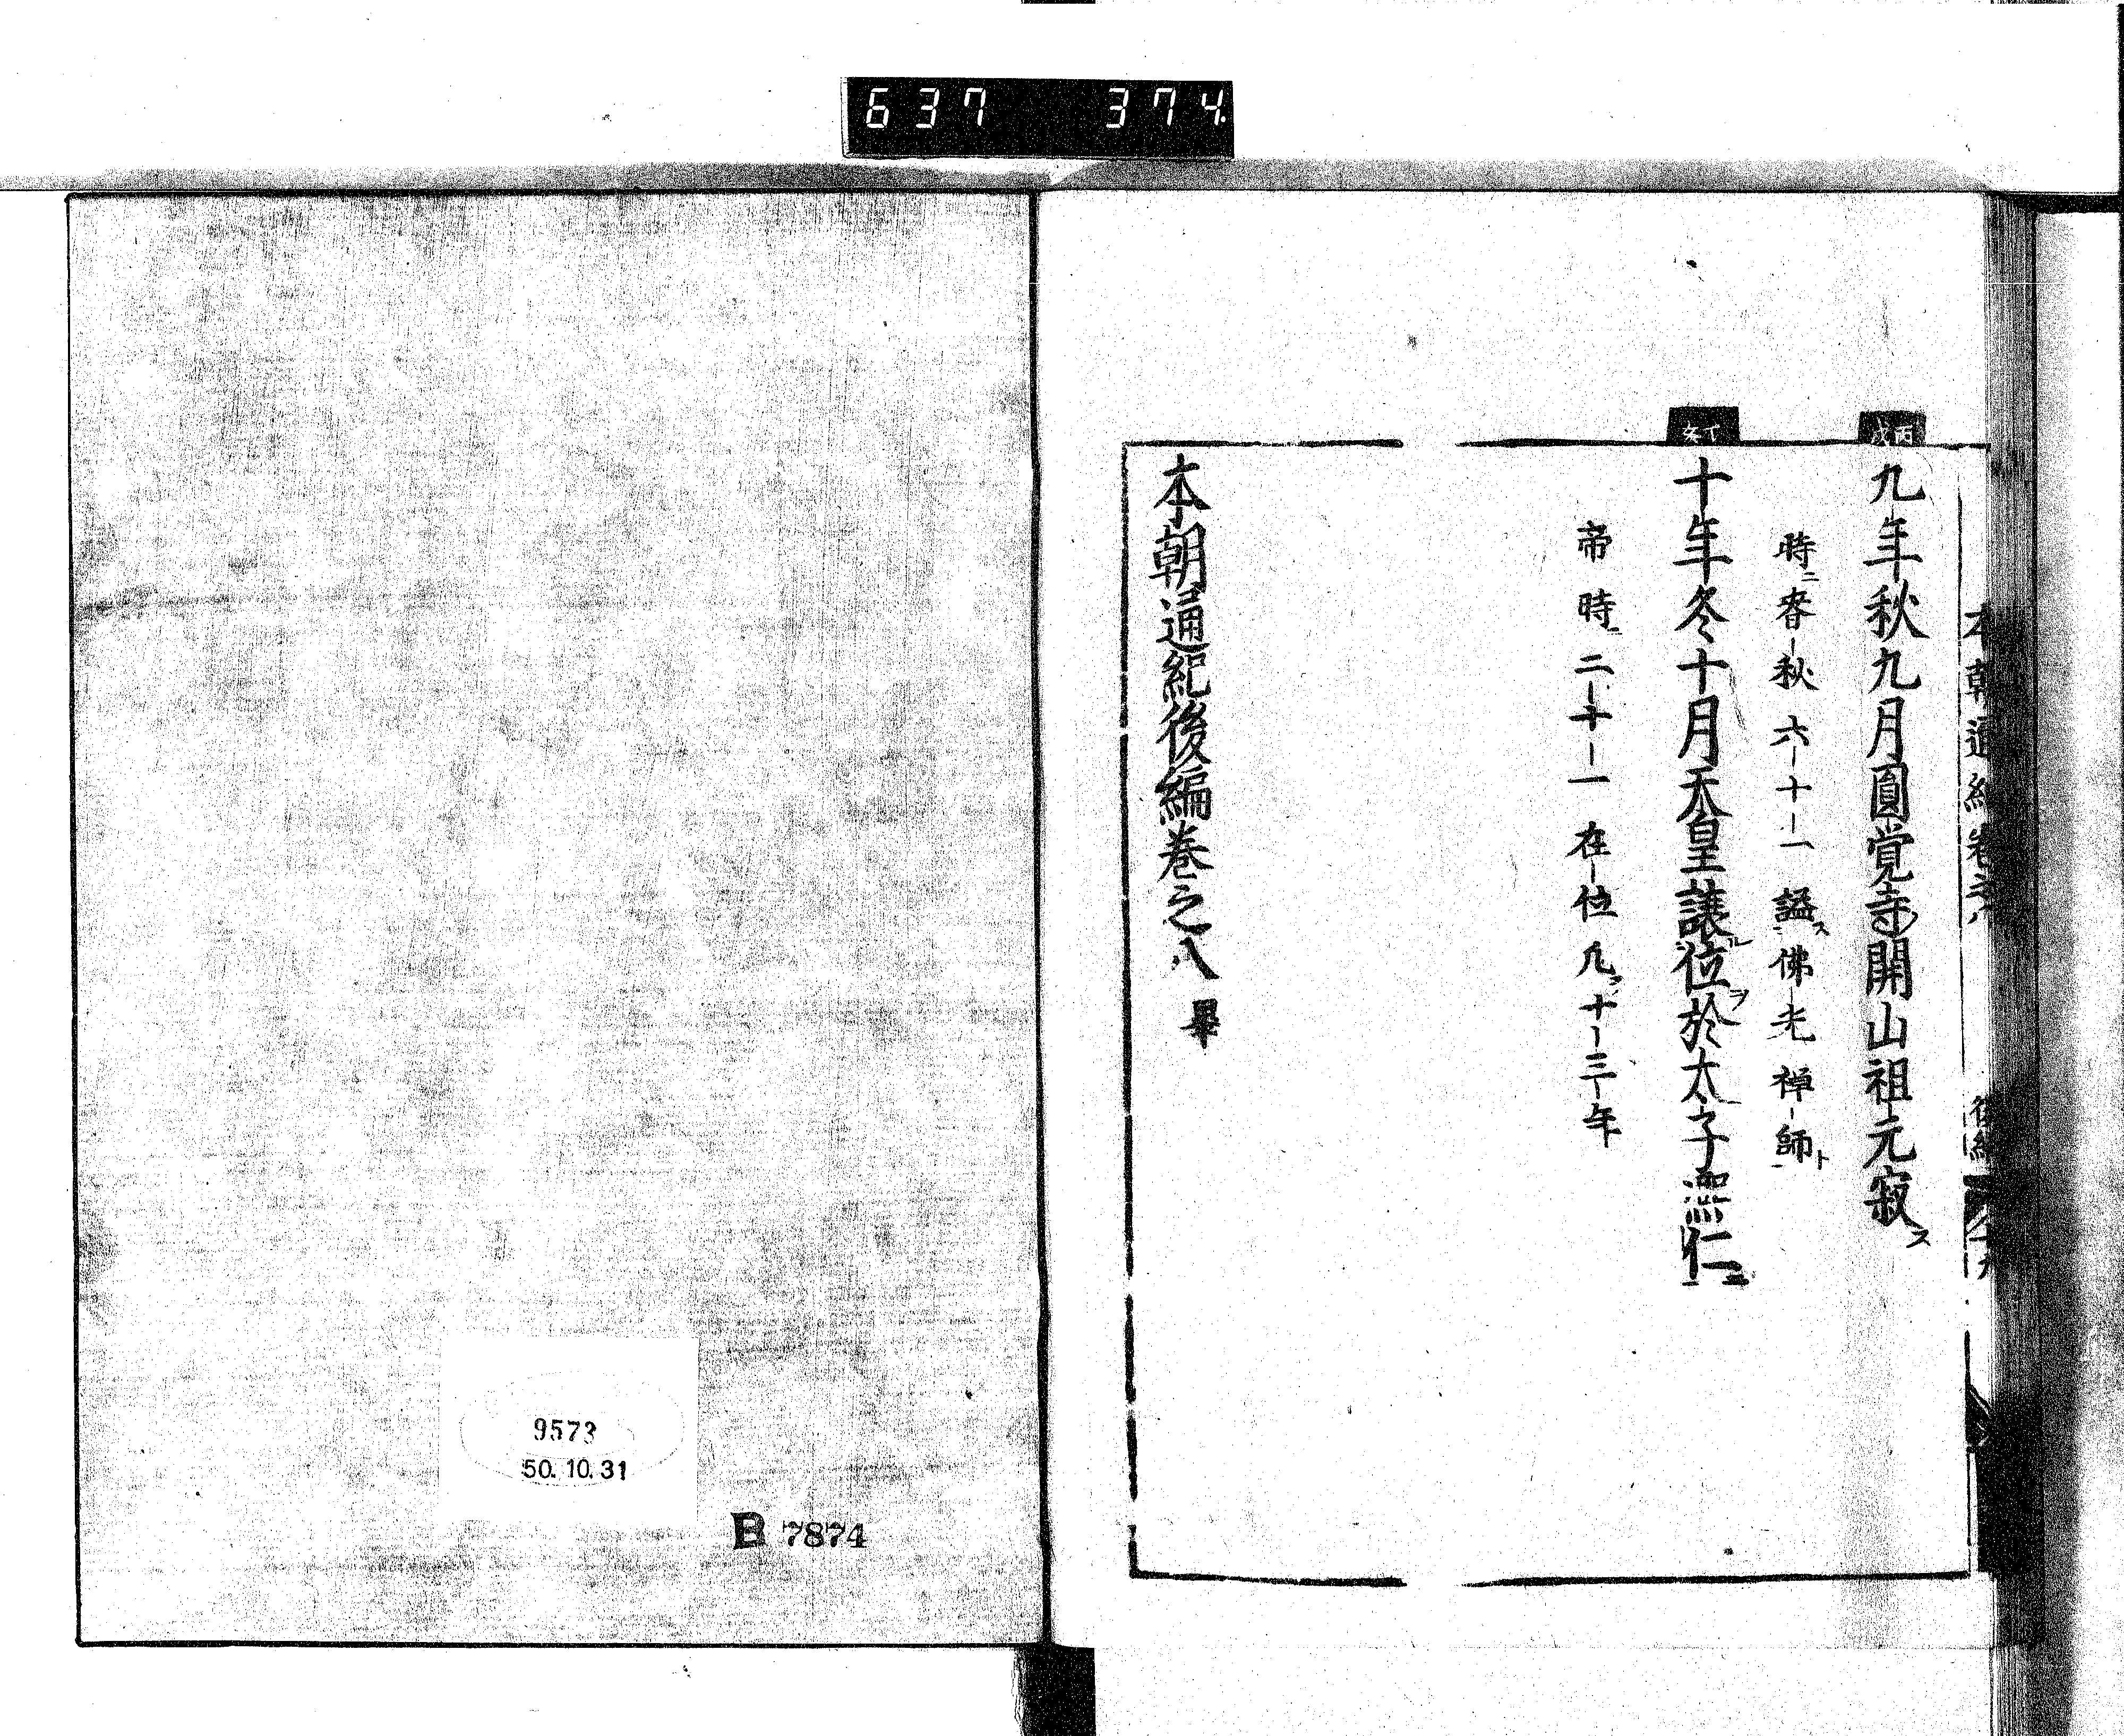 637 374.
本朝通紀卷之八 後編
丙戌
九年秋九月圓覚寺開山祖元寂ス
時ニ春-秋六-十-一謚ス佛-光禅-師ト
丁亥
十年冬十月天皇譲ル位ヲ於太子熈仁ニ
帝時ニ二-十-一在-位凡ソ十-三-年
本朝通紀後編巻之八 畢
9573
50.10.31
B 7874